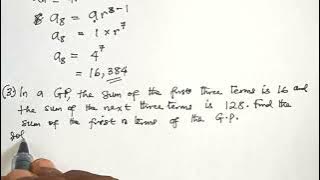 a₈ = ar⁸⁻¹
a₈ = 1 × r⁷
a₈ = 4⁷
= 16,384
(3) In a GP, the sum of the first three terms is 16 and
the sum of the next three terms is 128. find the
sum of the first n terms of the G.P.
Sol